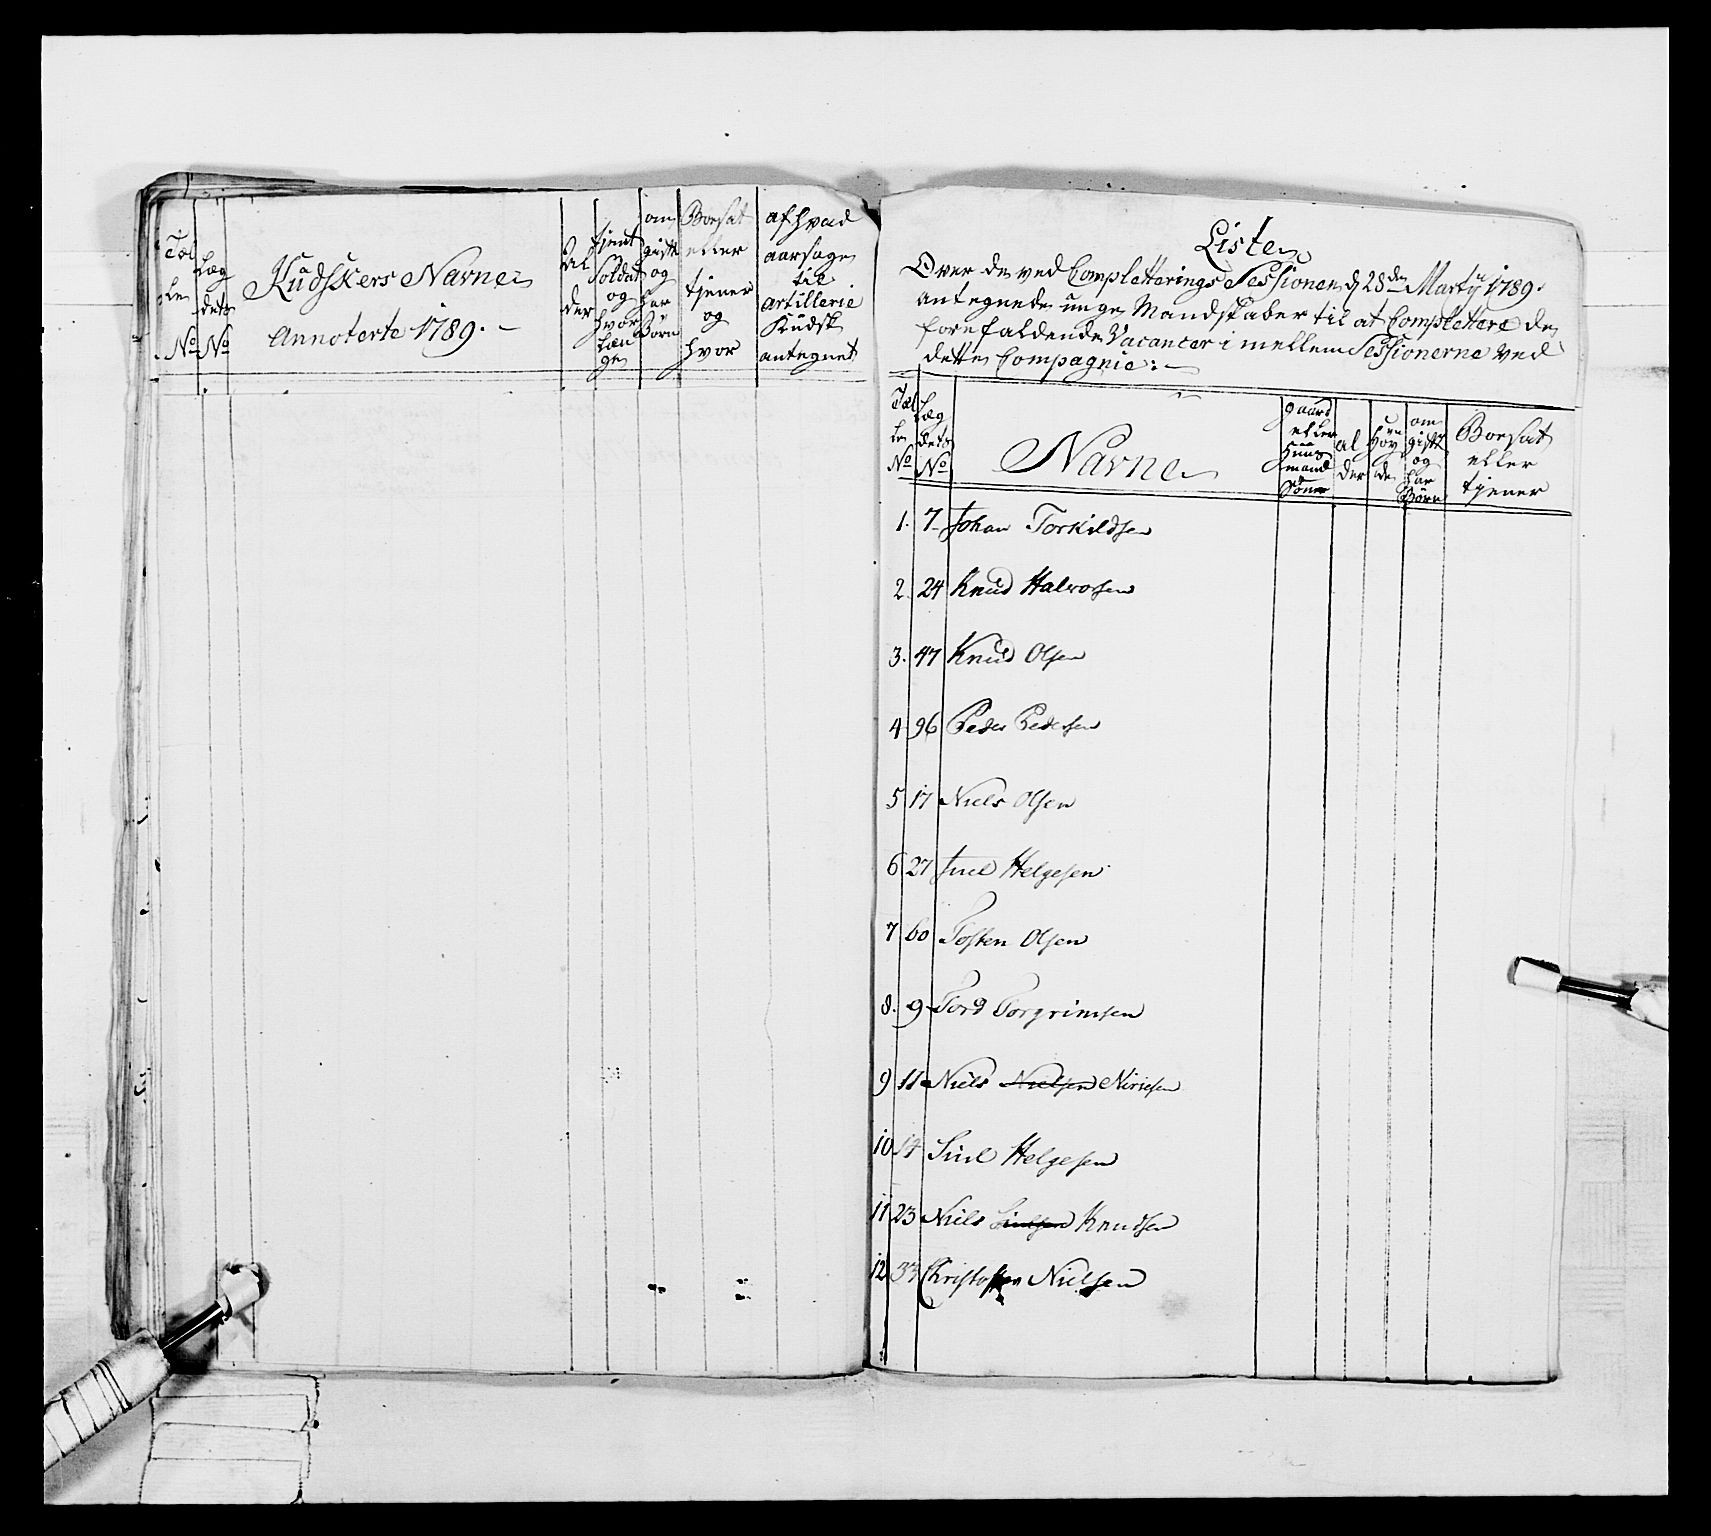 Tæl
le
No
Læg
dets
No
Kudskers Navne
Annoterte 1789.
Al
der
tjent
Soldat
og
hvor
læn
ge
om
gift
og
har
Børn
Boesat
eller
tjener
og
hvor
af hvad
aarsage
til
artillerie
Kudsk
antegnet
Liste
Over de ved Completterings Sessionen d 28de Marty 1789.
antegnede unge Mandskaber til at Complettere de
forefaldende Vacancer i mellem Sessionerne ved
dette Compagnie:
Tæl
le
No
Læg
dets
No
Navne
gaard
eller
Huus
mand
Sønner
al
der
om
gift
og
har
Børn
Boesat
eller
tjener
1. 7 Johan Torkildsen
2. 24 Knud Halvorsen
3. 47 Knud Olsen
4 96 Peder Pedersen
5 17 Niels Olsen
6 27 Juel Helgesen
7 60 Tosten Olsen
8. 9 Tord Torgrimsen
9 11 Niels Nielsen Nirisen
10 14 Juel Helgesen
11 23 Niels Juelsen Knudsen
12 33 Christoffer Nielsen